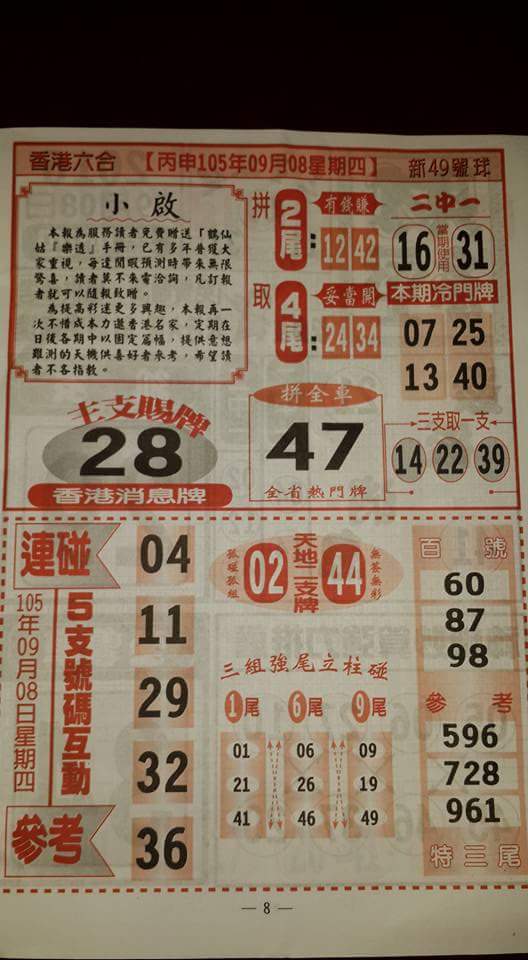 香港六合 【丙申105年09月08星期四】 新49號球
小啟
本報為服務讀者免費贈送「鶴仙
姑『樂透』手冊，已有多年普獲大
家重視，每逢閒暇預測時帶來無限
驚喜，讀者莫不來電洽詢，凡訂報
者就可以隨報致贈。
為提高彩迷更多興趣，本報再一
次不惜成本力邀香港名家，定期在
日後各期中以固定篇幅，提供意想
難測的天機供喜好者參考，希望讀
者不吝指教。
拼 2尾：有錢賺
12 42
取 4尾：妥當開
24 34
二中一
16 當期使用 31
本期冷門牌
07 25
13 40
主支賜牌
28
香港消息牌
拼全車
47
全省熱門牌
三支取一支
14 22 39
連碰
105年09月08日星期四
5支號碼互動
參考
04
11
29
32
36
孤碰孤組 02 天地二支牌 44 無簽無彩
三組強尾立柱碰
1尾 6尾 9尾
01 06 09
21 26 19
41 46 49
百號
60
87
98
參考
596
728
961
特三尾
— 8 —